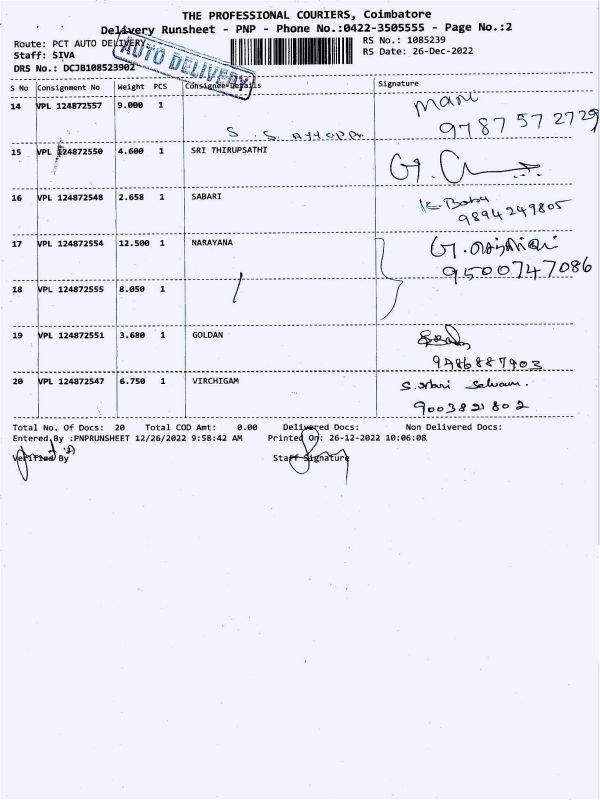 THE PROFESSIONAL COURIERS, Coimbatore
Delivery Runsheet - PNP - Phone No.:0422-3505555 - Page No.:2
Route: PCT AUTO DELIVERY
RS No.: 1085239
Staff: SIVA
RS Date: 26-Dec-2022
DRS No.: DCJB108523902
AUTO DELIVERY
S No Consignment No Weight PCS Consignee Details Signature
14 VPL 124872557 9.000 1 Mani
S. S. 9787572729
15 VPL 124872550 4.600 1 SRI THIRUPSATHI G.
16 VPL 124872548 2.658 1 SABARI K. Babu
9894249805
17 VPL 124872554 12.500 1 NARAYANA G.
9500747086
18 VPL 124872555 8.050 1 /
19 VPL 124872551 3.680 1 GOLDAN
9486887903
20 VPL 124872547 6.750 1 VIRCHIGAM S. Hari Selvam.
9003821802
Total No. Of Docs: 20 Total COD Amt: 0.00 Delivered Docs: Non Delivered Docs:
Entered By :PNPRUNSHEET 12/26/2022 9:58:42 AM Printed On: 26-12-2022 10:06:08
Verified By Staff Signature